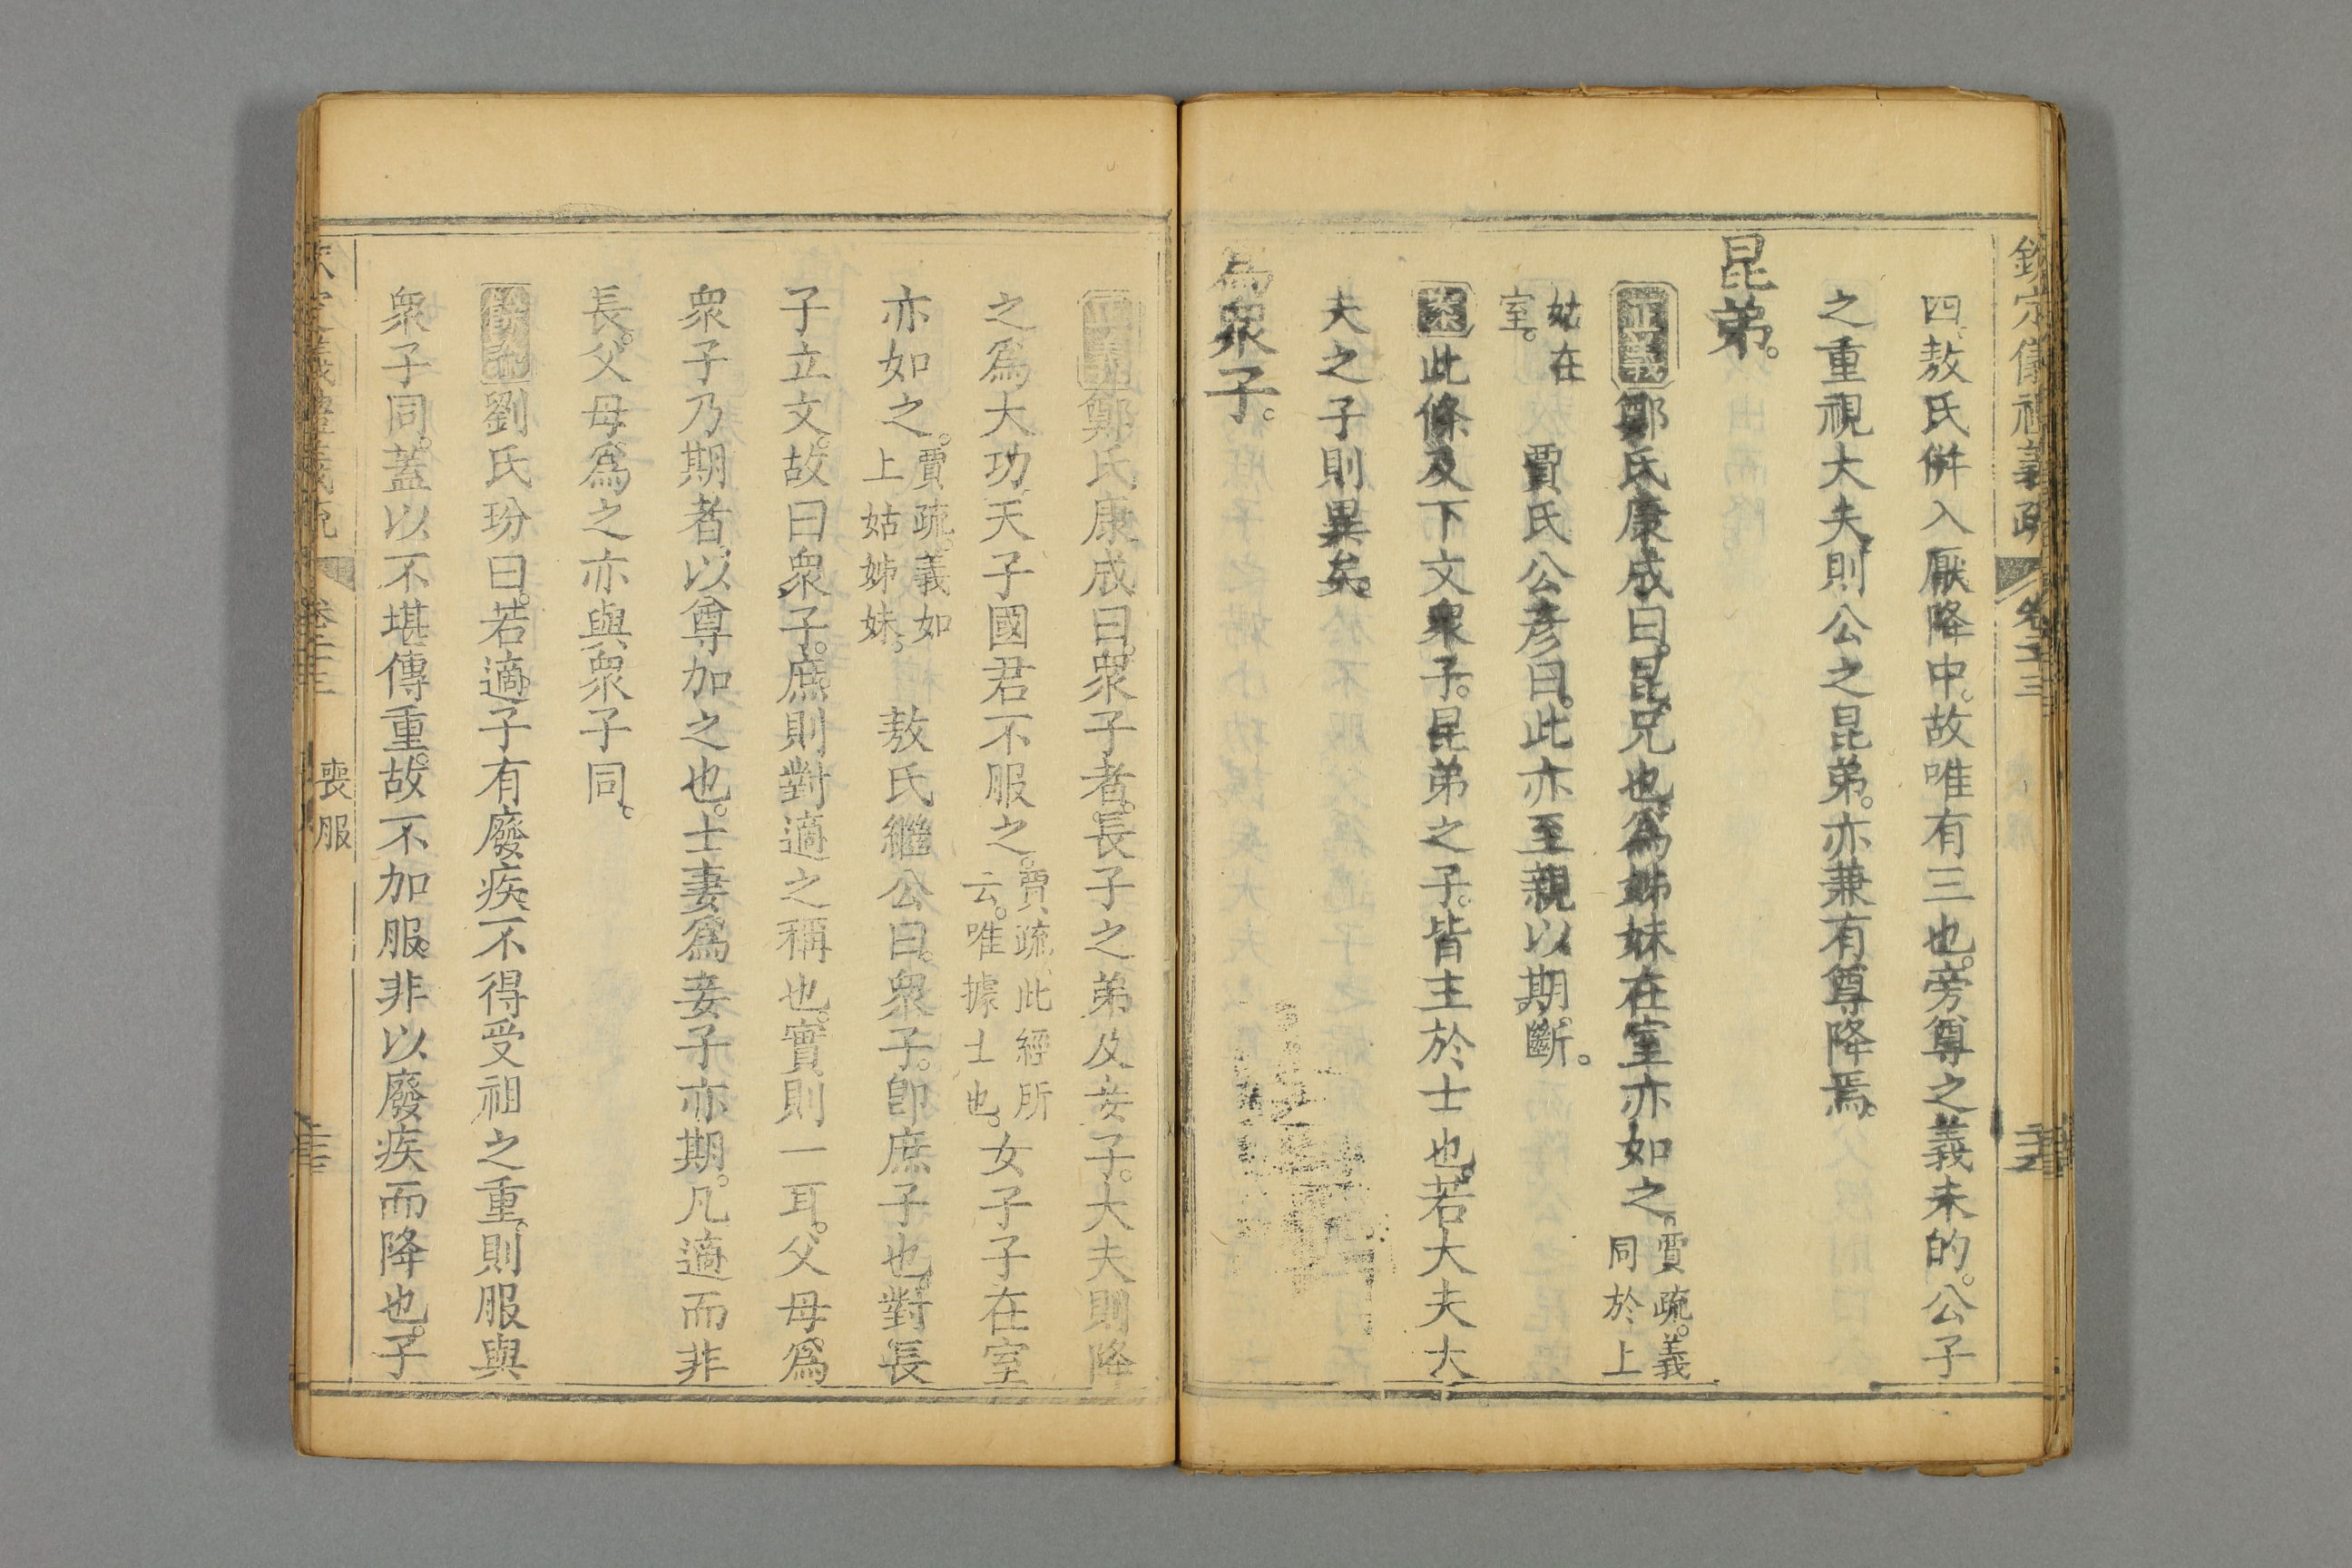 欽定儀禮義疏 卷二十三
四敖氏併入厭降中。故唯有三也。旁尊之義未的。公子
之重視大夫則公之昆弟。亦兼有尊降焉。
昆弟。
正義鄭氏康成曰。昆。兄也。爲姊妹在室亦如之。賈疏。義同於上
姑在室。 賈氏公彥曰。此亦至親以期斷。
案此條及下文衆子。昆弟之子。皆主於士也。若大夫大
夫之子則異矣。
爲衆子。
正義鄭氏康成曰。衆子者。長子之弟及妾子。大夫則降
之爲大功。天子國君不服之。賈疏、此經所云。唯據士也。女子子在室
亦如之。賈疏。義如上姑姊妹。 敖氏繼公曰。衆子。卽庶子也。對長
子立文。故曰衆子。庶則對適之稱也。實則一耳。父母爲
衆子乃期者。以尊加之也。士妻爲妾子亦期。凡適而非
長。父母爲之亦與衆子同。
餘論劉氏玢曰。若適子有廢疾不得受祖之重。則服與
衆子同。蓋以不堪傳重。故不加服。非以廢疾而降也。子
欽定儀禮義疏 卷二十三 喪服